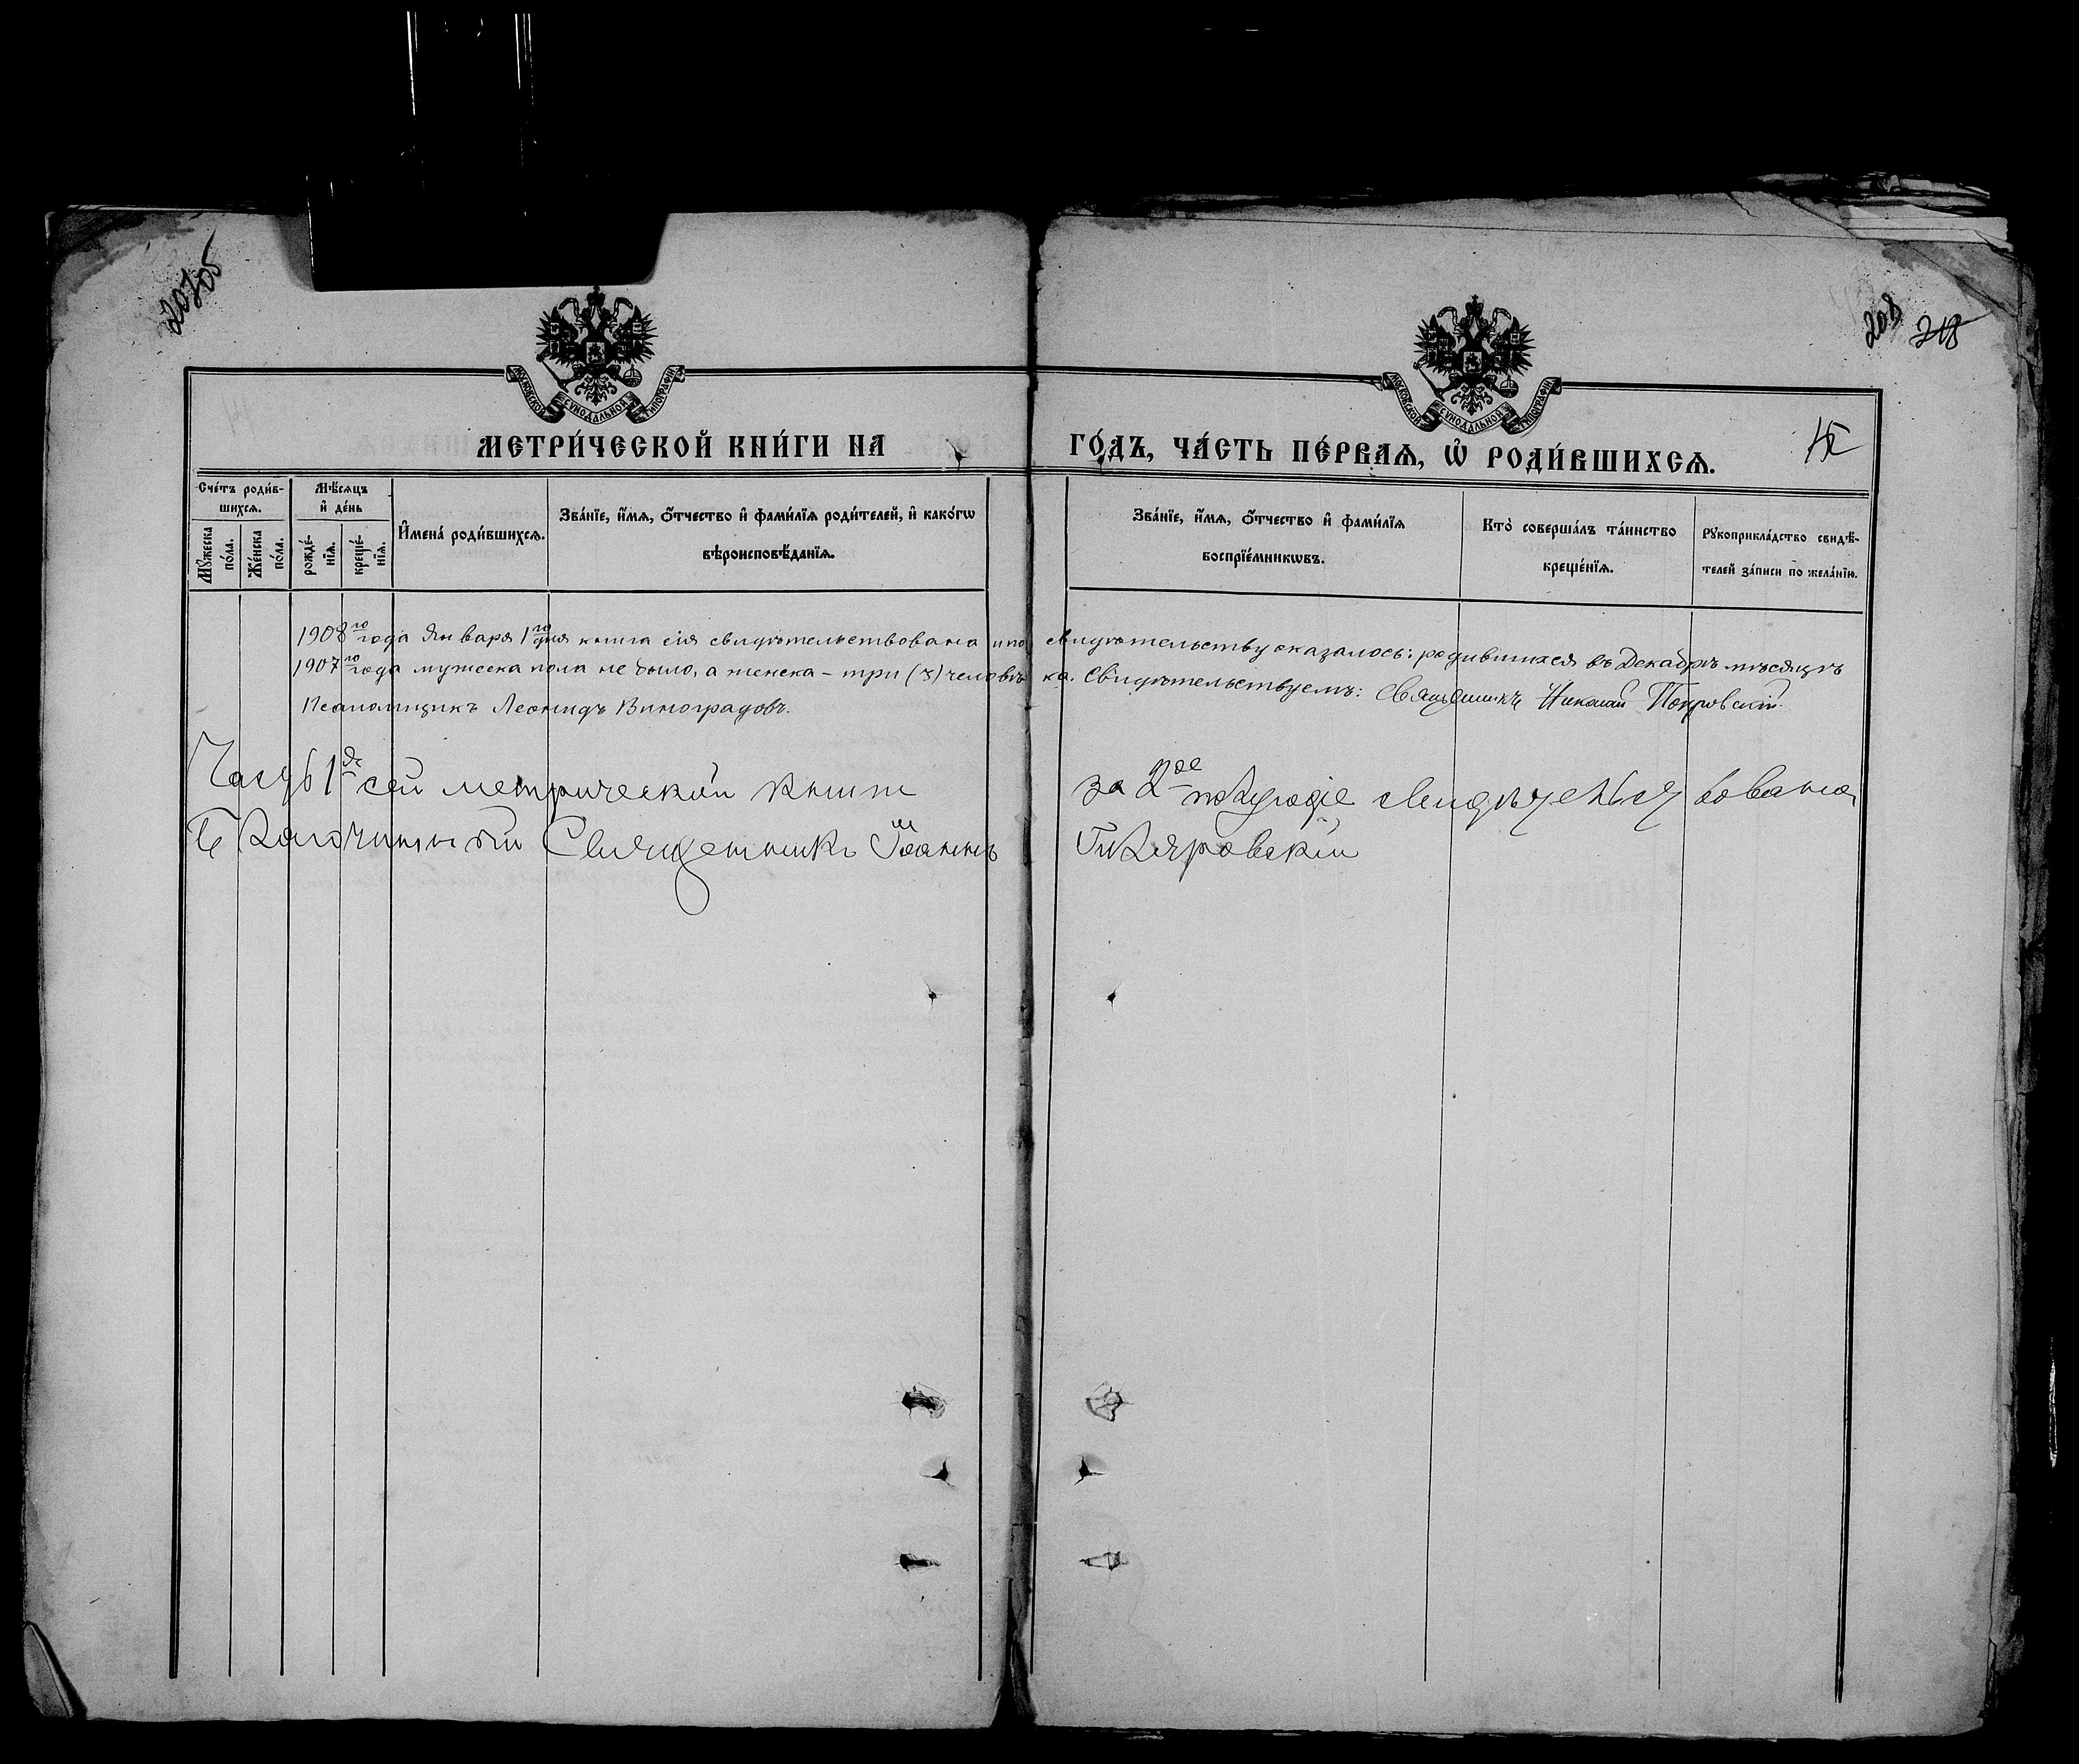 207об
208
218
МОСКОВСКОЙ СУНОДАЛЬНОЙ ТИПОГРАФІИ
МОСКОВСКОЙ СУНОДАЛЬНОЙ ТИПОГРАФІИ
МЕТРИ́ЧЕСКОЙ КНИ́ГИ НА ГО́ДЪ, ЧА́СТЬ ПЕ́РВАѦ, Ѡ҆ РОДИ́ВШИХСѦ.
15
Сче́тъ роди́в-
шихсѧ.
Мꙋ́жеска по́ла.
Же́нска по́ла.
Мѣ́сѧцъ
и҆ де́нь
рожде́-нїѧ.
креще́-нїѧ.
И҆мена̀ роди́вшихсѧ.
Зва́нїе, и҆́мѧ, ѻ҆́тчество и҆ фами́лїѧ роди́телей, и҆ како́гѡ
вѣроисповѣ́данїѧ.
Зва́нїе, и҆́мѧ, ѻ҆́тчество и҆ фами́лїѧ
воспрїе́мникѡвъ.
Кто̀ соверша́лъ та́инство
креще́нїѧ.
Рꙋкоприкла́дство свидѣ́-
телей за́писи по жела́нїю.
1908го года Января 1го дня книга сія свидѣтельствована и по свидѣтельству оказалось: родившихся въ Декабрѣ мѣсяцѣ
1907го года мужеска пола не было, а женска – три (3) человѣка. Свидѣтельствуемъ: Священникъ Николай Покровскій.
Псаломщикъ Леонидъ Виноградовъ.
Часть 1я сей метрической книги за 2ое полугодіе свидѣтельствована,
Благочинный Священникъ Іоаннъ